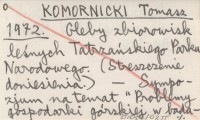 KOMORNICKI Tomasz
1972. Gleby zbiorowisk
leśnych Tatrzańskiego Parku
Narodowego. (Streszczenie
doniesienia). — Sympo-
zjum na temat "Problemy
gospodarki górskiej w